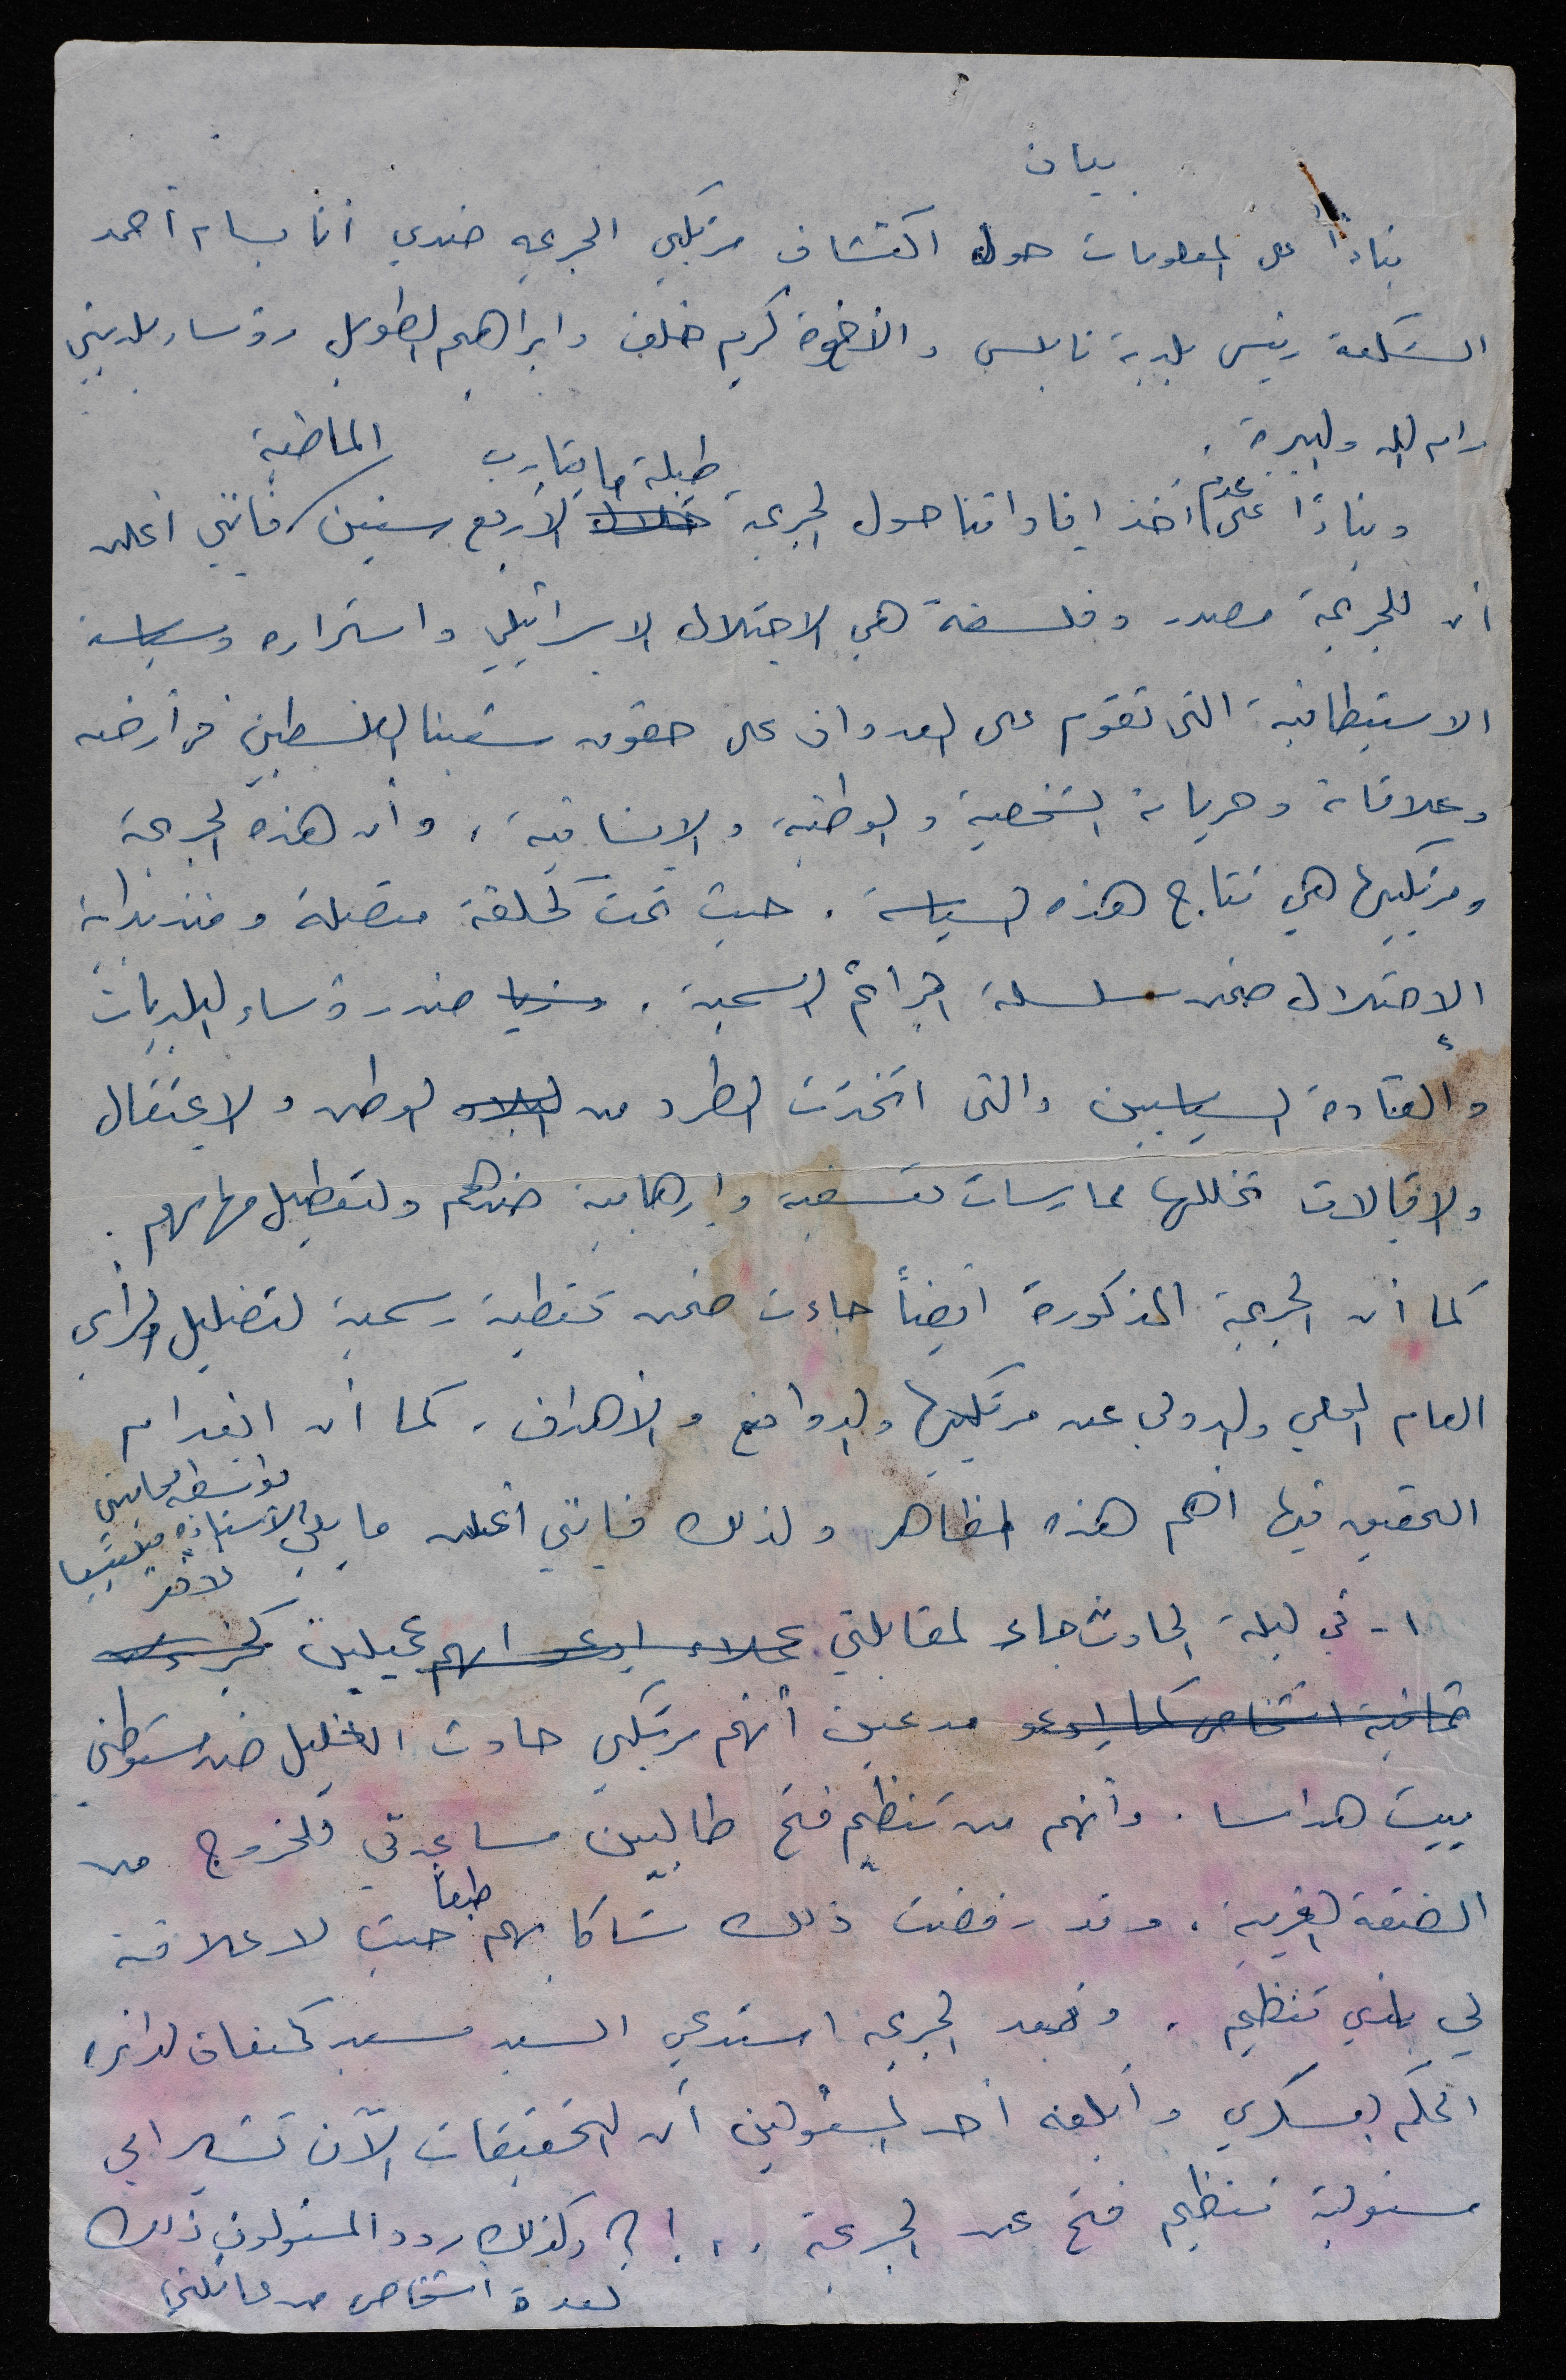 بيان
بناءً على المعلومات حول اكتشاف مرتكبي الجريمه ضدي أنا بسام أحمد
الشكعة رئيس بلدية نابلس والاخوة كريم خلف وابراهيم الطويل رؤساء بلديتي
رام الله والبيرة .
وبناءً على عدم أخذ افاداتنا حول الجريمة خلال طيلة ما يقارب الأربع سنين الماضية فانني أعلن
أن للجريمة مصدر وفلسفة هي الاحتلال الاسرائيلي واستمراره وسياسة
الاستيطانية التي تقوم على العدوان على حقوق شعبنا الفلسطيني في أرضه
وعلاقاته وحرياته الشخصية والوطنية والانسانية ، وأن هذه الجريمة
ومرتكبيها هي نتاج هذه السياسة . حيث تمت كحلقة متصلة ومنذ بداية
الاحتلال ضمن سلسلة الجرائم الرسمية . ضد رؤساء البلديات
والقادة السياسيين والتي اتخذت الطرد من البلاد الوطن والاعتقال
والاقالات تخللها ممارسات تعسفية وارهابية ضدهم ولتعطيل مهامهم .
كما أن الجريمة المذكورة أيضاً جاءت ضمن تغطية رسمية لتضليل الرأي
العام المحلي والدولي عن مرتكبيها والدوافع والأهداف ، كما أن انعدام
التحقيق فيها أهم هذه المظاهر ولذلك فانني أعلن ما يلي بواسطة محاميتي الاستاذه فيليتسيا
لانغر
١- في ليلة الحادث جاء لمقابلتي عملاء ادعو انهم عميلين
ثمانية اشخاص كما ادعو مدعين أنهم مرتكبي حادث الخليل ضد مستوطني
بيت هداسا . وأنهم من تنظيم فتح طالبين مساعدتي للخروج من
الضفة الغربية . وقد رفضت ذلك شاكا بهم طبعاً حيث لا علاقة
لي بأي تنظيم . وبعد الجريمه استدعي السيد سعيد كنعان لدائره
الحكم العسكري وأبلغه أحد المسئولين أن التحقيقات الآن تشير الى
مسئولية تنظيم فتح عن الجريمة ...! ؟ وكذلك ردد المسئولون ذلك
لعدة أشخاص من عائلتي